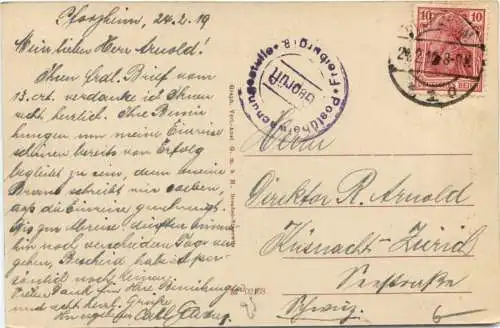 Pforzheim, 24.2.19
Mein lieber Herr Arnold!
Ihren Brief vom
13. ort. verdanke ich Ihnen
recht herzlich. Ihre Bemü-
hungen um meine Einreise
scheinen bereits von Erfolg
begleitet zu sein, denn meine
Braut schreibt mir soeben,
daß die Einreise genehmigt.
Bis zur Abreise dürften immer-
hin noch verschiedene Tage ver-
gehen, Bescheid habe ich per-
sönlich noch keinen.
Dank für Ihre Bemühungen
und recht herzl. Grüße
Postüberwachungsstelle
Freiburg i. B.
Geprüft
10
10
Herrn
Direktor R. Arnold
Küsnacht-Zürich
Seestraße
Schweiz